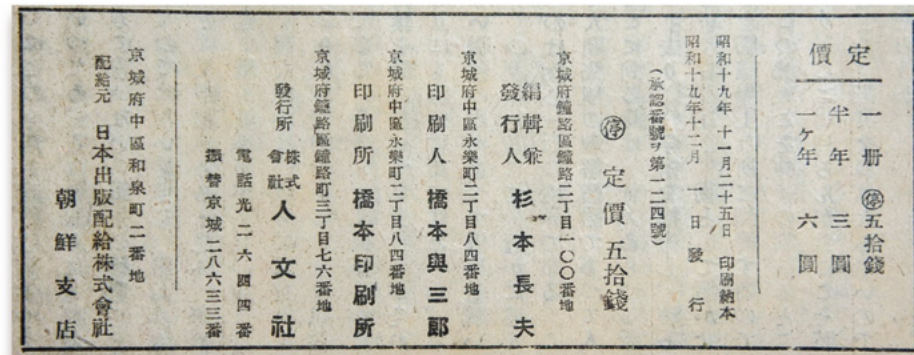 定價
一册 ㊡五拾錢
半年 三圓
一ケ年 六圓
昭和十九年 十一月二十五日 印刷納本
昭和十九年十二月 一日 發行
(承認番號ヲ第一二四號)
定價 五拾錢
京城府鐘路區鐘路二丁目一〇〇番地
編輯兼
發行人 杉本長夫
京城府中區永樂町二丁目八四番地
印刷人 橋本與三郎
京城府中區永樂町二丁目八四番地
印刷所 橋本印刷所
京城府鐘路區鐘路町三丁目七六番地
發行所 株式會社 人文社
電話光二六四四番
振替京城二八六三三番
京城府中區和泉町二番地
配給元 日本出版配給株式會社
朝鮮支店